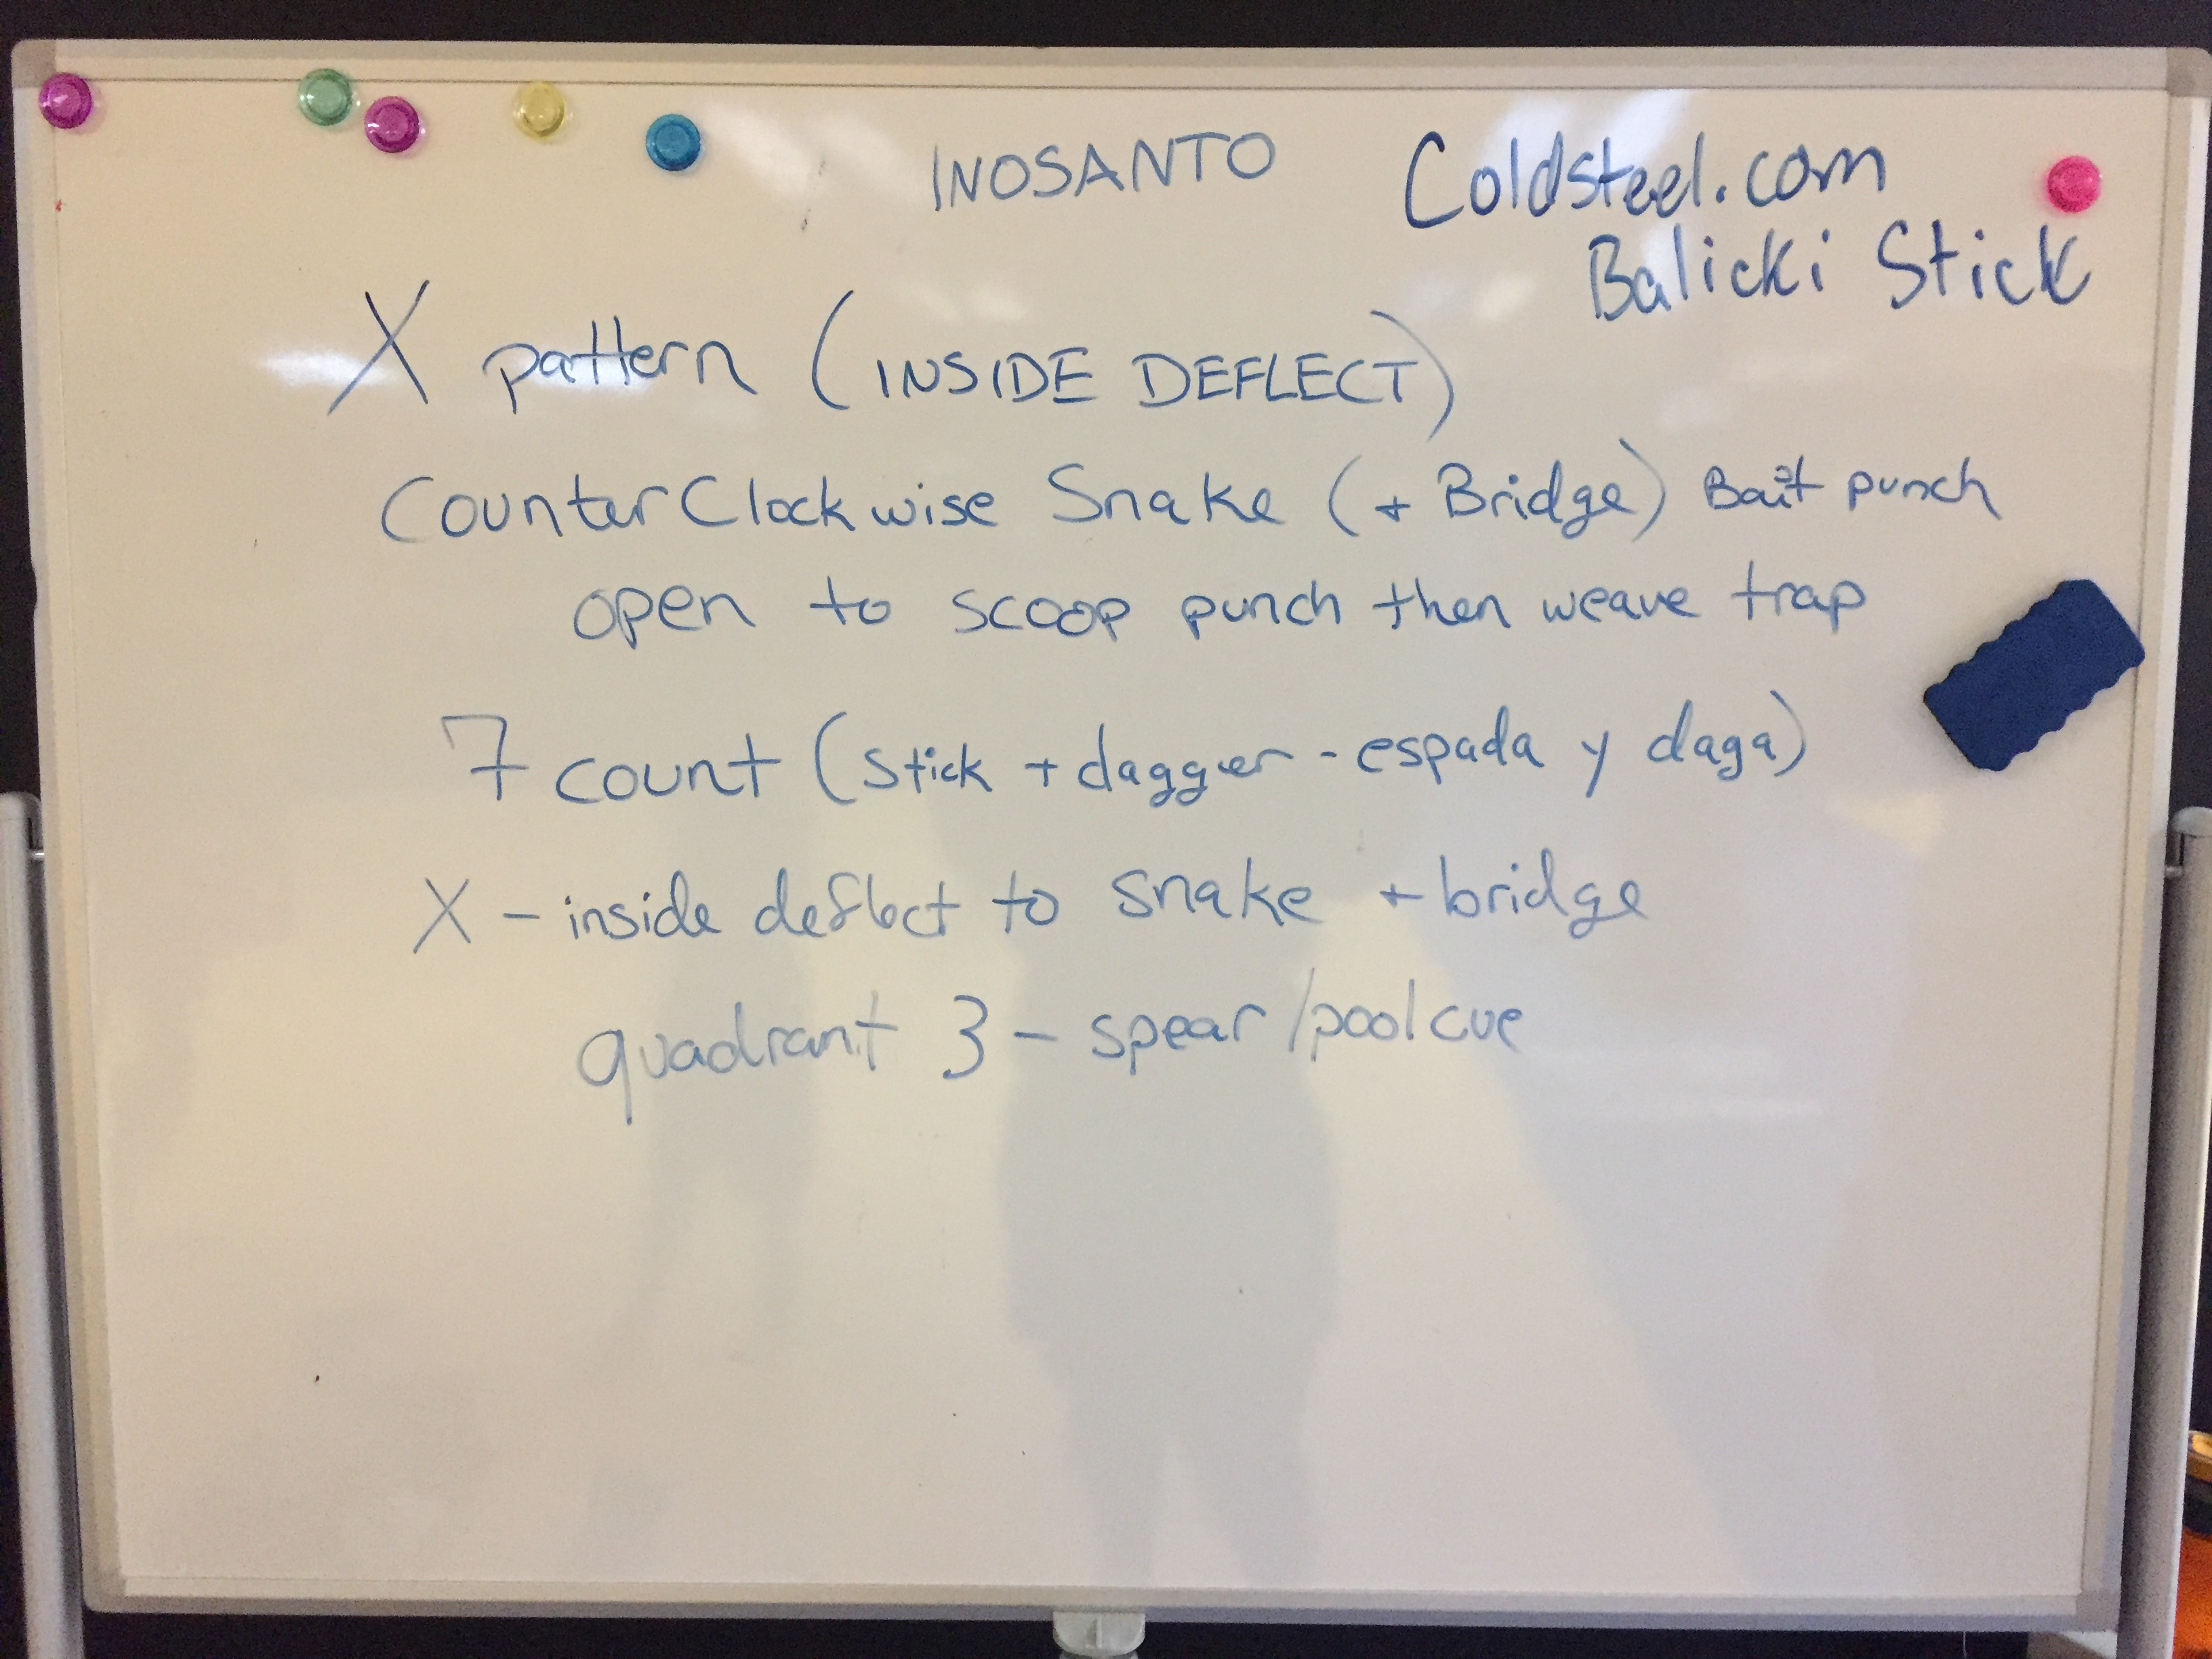 INOSANTO
Coldsteel.com
Balicki Stick
X pattern (INSIDE DEFLECT)
Counter Clockwise Snake (+ Bridge) Bait punch
open to scoop punch then weave trap
7 count (stick + dagger - espada y daga)
X - inside deflect to snake + bridge
quadrant 3 - spear/pool cue